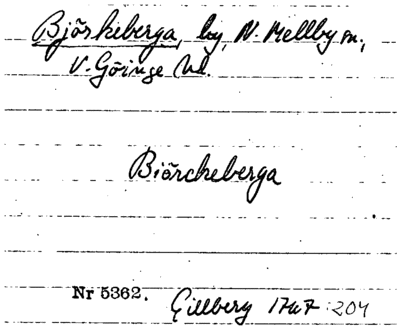 Björkeberga, by, N. Mellby sn,
V. Göinge hd.
Biörckeberga
Nr 5362. Gillberg 1767: 204